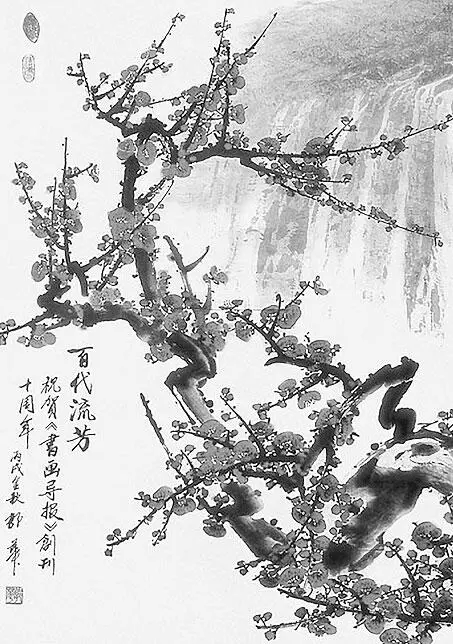 百代流芳
祝贺《書画导报》創刊
十周年 丙戌金秋 郁华